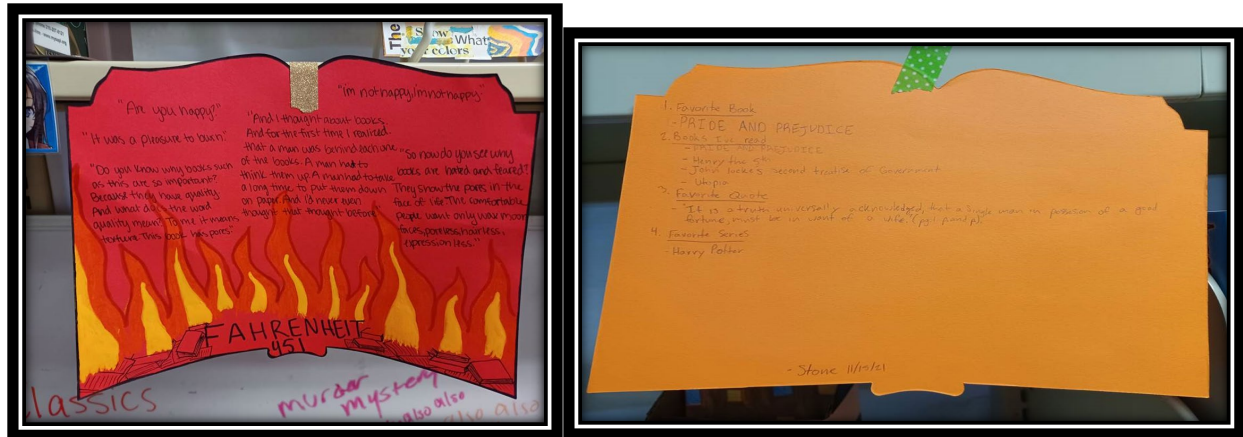 The
Show
What
your colors
"Are you happy?"
"i'm not happy, i'm not happy"
"It was a pleasure to burn"
"Do you know why books such
as this are so important?
Because they have quality.
And what does the word
quality mean? To me it means
texture. This book has pores."
"And I thought about books.
And for the first time I realized
that a man was behind each one
of the books. A man had to
think them up. A man had to take
a long time to put them down
on paper. And I'd never even
thought that thought before."
"So now do you see why
books are hated and feared?
They show the pores in the
face of life. The comfortable
people want only wax moon
faces, poreless, hairless,
expressionless."
FAHRENHEIT
451
classics
murder
mystery
also also
also also
1. Favorite Book
- PRIDE AND PREJUDICE
2. Books I've read
- PRIDE AND PREJUDICE
- Henry the 5th
- John Locke's second treatise of Government
- Utopia
3. Favorite Quote
- "It is a truth universally acknowledged, that a single man in possession of a good
fortune, must be in want of a wife."
4. Favorite Series
- Harry Potter
- Stone 11/15/21